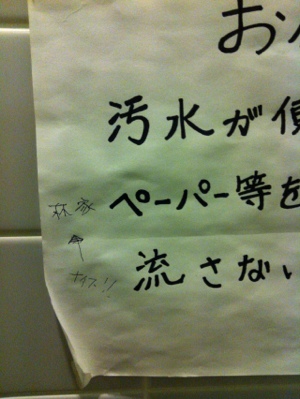 お
汚水が
ペーパー等を
流さない
ナイス!!